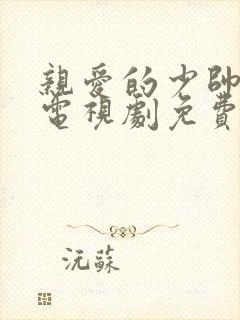 親愛的少帥
電視劇免費
沅蘇